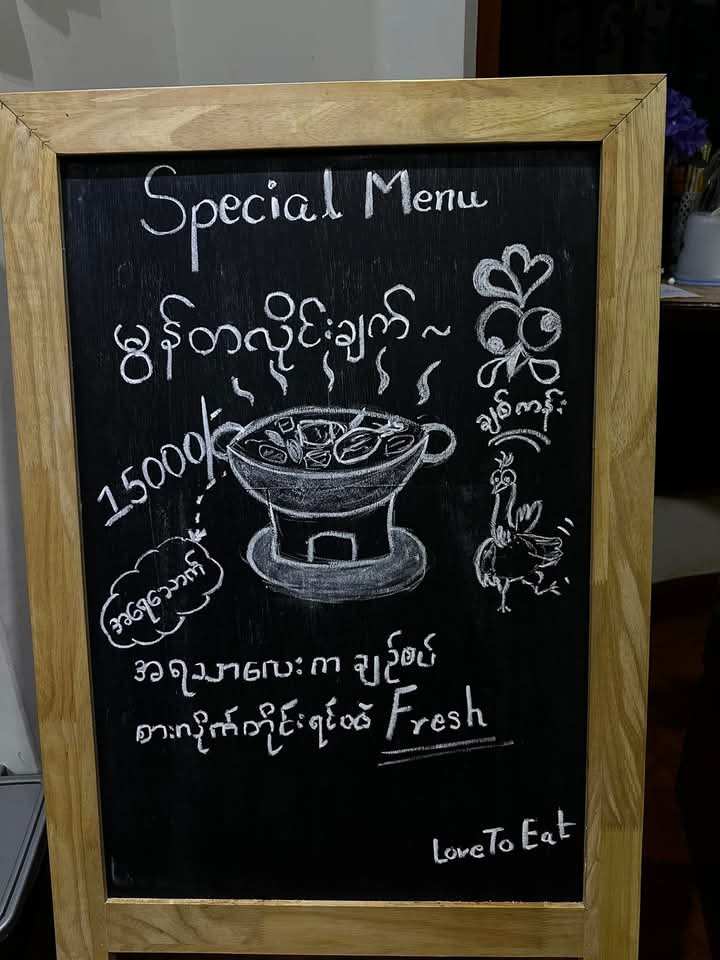 Special Menu
မွန်တလိုင်းချက် ~
ချစ်ကန်း
15000/-
အရေသောက်
အရသာလေးက ချဉ်စပ်
စားလိုက်တိုင်းရင်ထဲ Fresh
Love To Eat